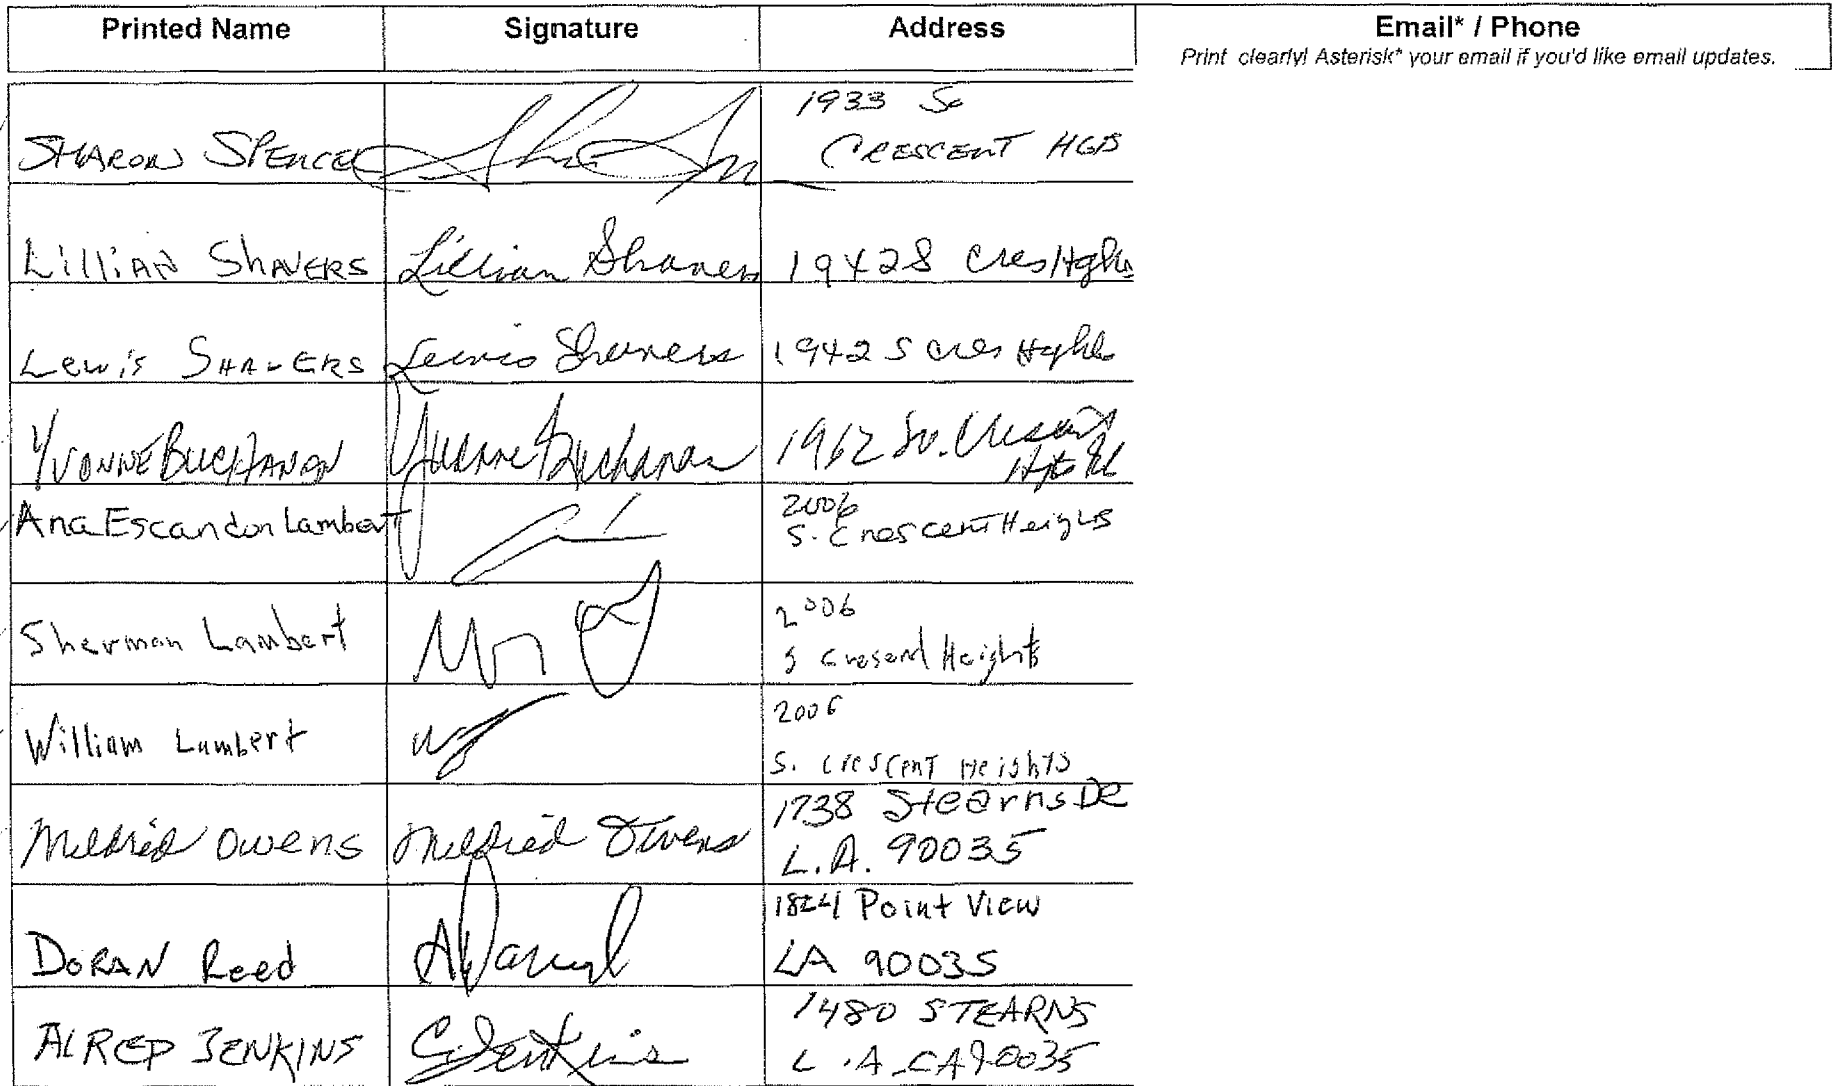 Printed Name Signature Address Email* / Phone
Print clearly! Asterisk* your email if you'd like email updates.
SHARON SPENCER 1933 So
CRESCENT HGTS
LilliAN ShAVERS Lillian Shavers 1942 S Cres Hghts
Lewis SHAVERS Lewis Shavers 1942 S Cres Hghts
YVONNE BUCHANAN Yvonne Buchanan 1962 So. Crescent
Ana Escandon Lambert 2006
S. Crescent Heights
Sherman Lambert 2006
S Cresend Heights
William Lambert 2006
S. Crescent Heights
Mildred Owens Mildred Owens 1738 Stearns DR
L.A. 90035
DORAN Reed 1824 Point View
LA 90035
ALRED JENKINS Jenkins 1480 STEARNS
L.A. CA 90035